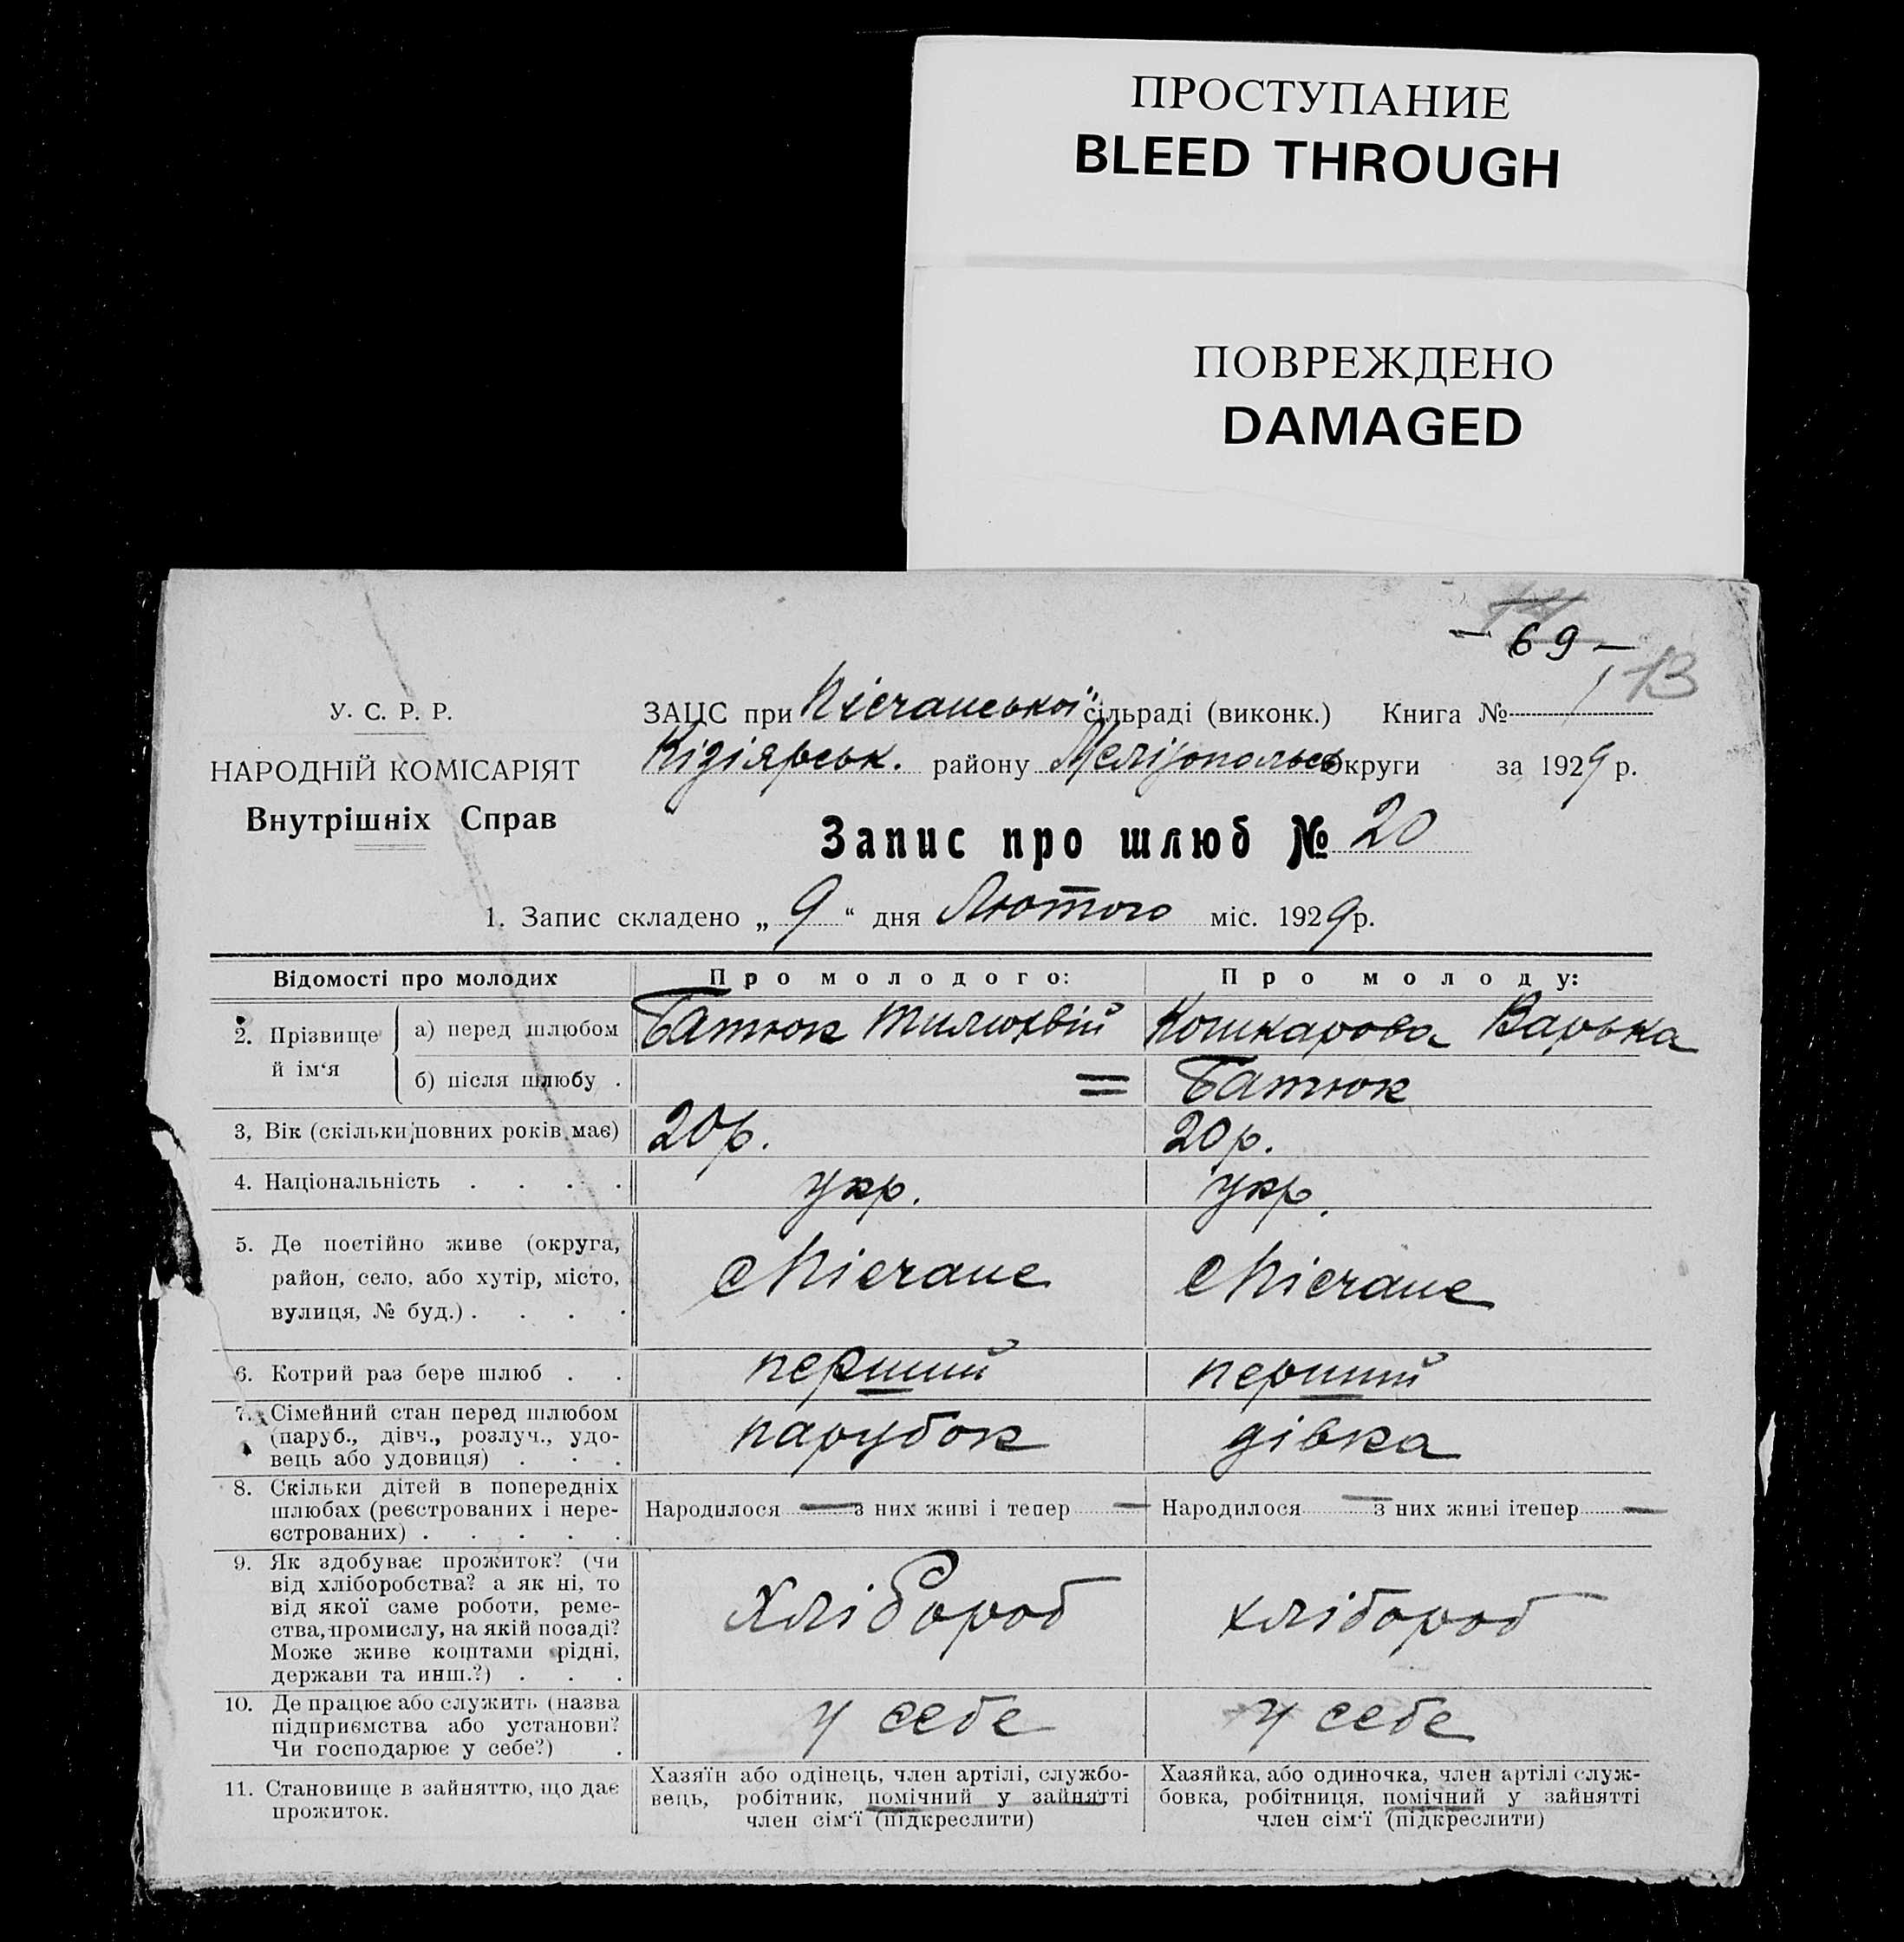 ПРОСТУПАНИЕ
BLEED THROUGH
ПОВРЕЖДЕНО
DAMAGED
— 69 —
13
У. С. Р. Р.
НАРОДНІЙ КОМІСАРІЯТ
Внутрішніх Справ
ЗАЦС при Пісчанської сільраді (виконк.) Книга № 1
Кізіярськ. району Мелітопольсь округи за 1929 р.
Запис про шлюб № 20
1. Запис складено „ 9 “ дня Лютого міс. 1929 р.
Відомості про молодих
Про молодого:
Про молоду:
2. Прізвище й ім‘я
а) перед шлюбом
Батюк Тимохвій
Кошкарова Варька
б) після шлюбу .
=
Батюк
3, Вік (скільки повних років має)
20 р.
20 р.
4. Національність . . . .
укр.
укр.
5. Де постійно живе (округа,
район, село, або хутір, місто,
вулиця, № буд.) . . . .
с Пісчане
с Пісчане
6. Котрий раз бере шлюб . .
перший
перший
7. Сімейний стан перед шлюбом
(паруб., дівч., розлуч., удо-
вець або удовиця) . . .
парубок
дівка
8. Скільки дітей в попередніх
шлюбах (реєстрованих і нере-
єстрованих) . . . . .
Народилося — з них живі і тепер —
Народилося — з них живі ітепер —
9. Як здобуває прожиток? (чи
від хліборобства? а як ні, то
від якої саме роботи, реме-
ства, промислу, на якій посаді?
Може живе коштами рідні,
держави та инш.?) . . .
Хлібороб
хлібороб
10. Де працює або служить (назва
підприємства або установи?
Чи господарює у себе?) .
у себе
у себе
11. Становище в зайняттю, що дає
прожиток.
Хазяїн або одінець, член артілі, службо-
вець, робітник, помічний у зайнятті
член сім‘ї (підкреслити)
Хазяйка, або одиночка, член артілі служ-
бовка, робітниця, помічний у зайнятті
член сім‘ї (підкреслити)